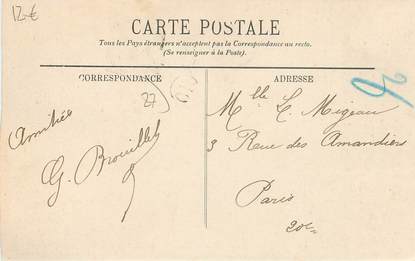 12€
CARTE POSTALE
Tous les Pays étrangers n'acceptent pas la Correspondance au recto.
(Se renseigner à la Poste).
CORRESPONDANCE
ADRESSE
27
Amitiés
G. Brouillet
Mlle L. Migeau
3 Rue des Amandiers
Paris
20e